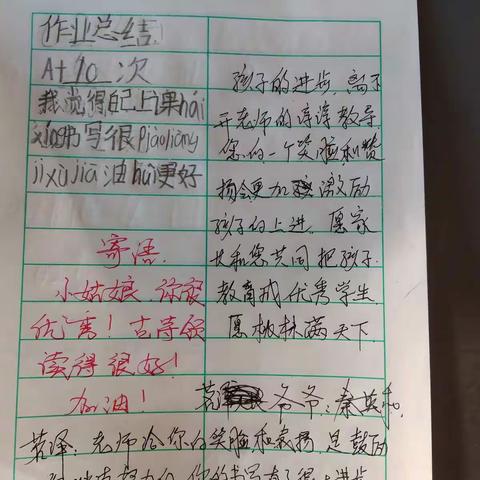 作业总结
A+10次
我觉得自己上课hái
书写很piàoliang
jìxùjiā油hái更好
寄语
小姑娘,你很
优秀!古诗
读得很好!
加油!
孩子的进步,离不
开老师的谆谆教导,
您的一个笑脸和赞
扬会更加激励
孩子的上进。愿家
长和您共同把孩子
教育成优秀学生
愿桃林满天下
爷爷:
若泽:老师给你的笑脸和表扬,是鼓励